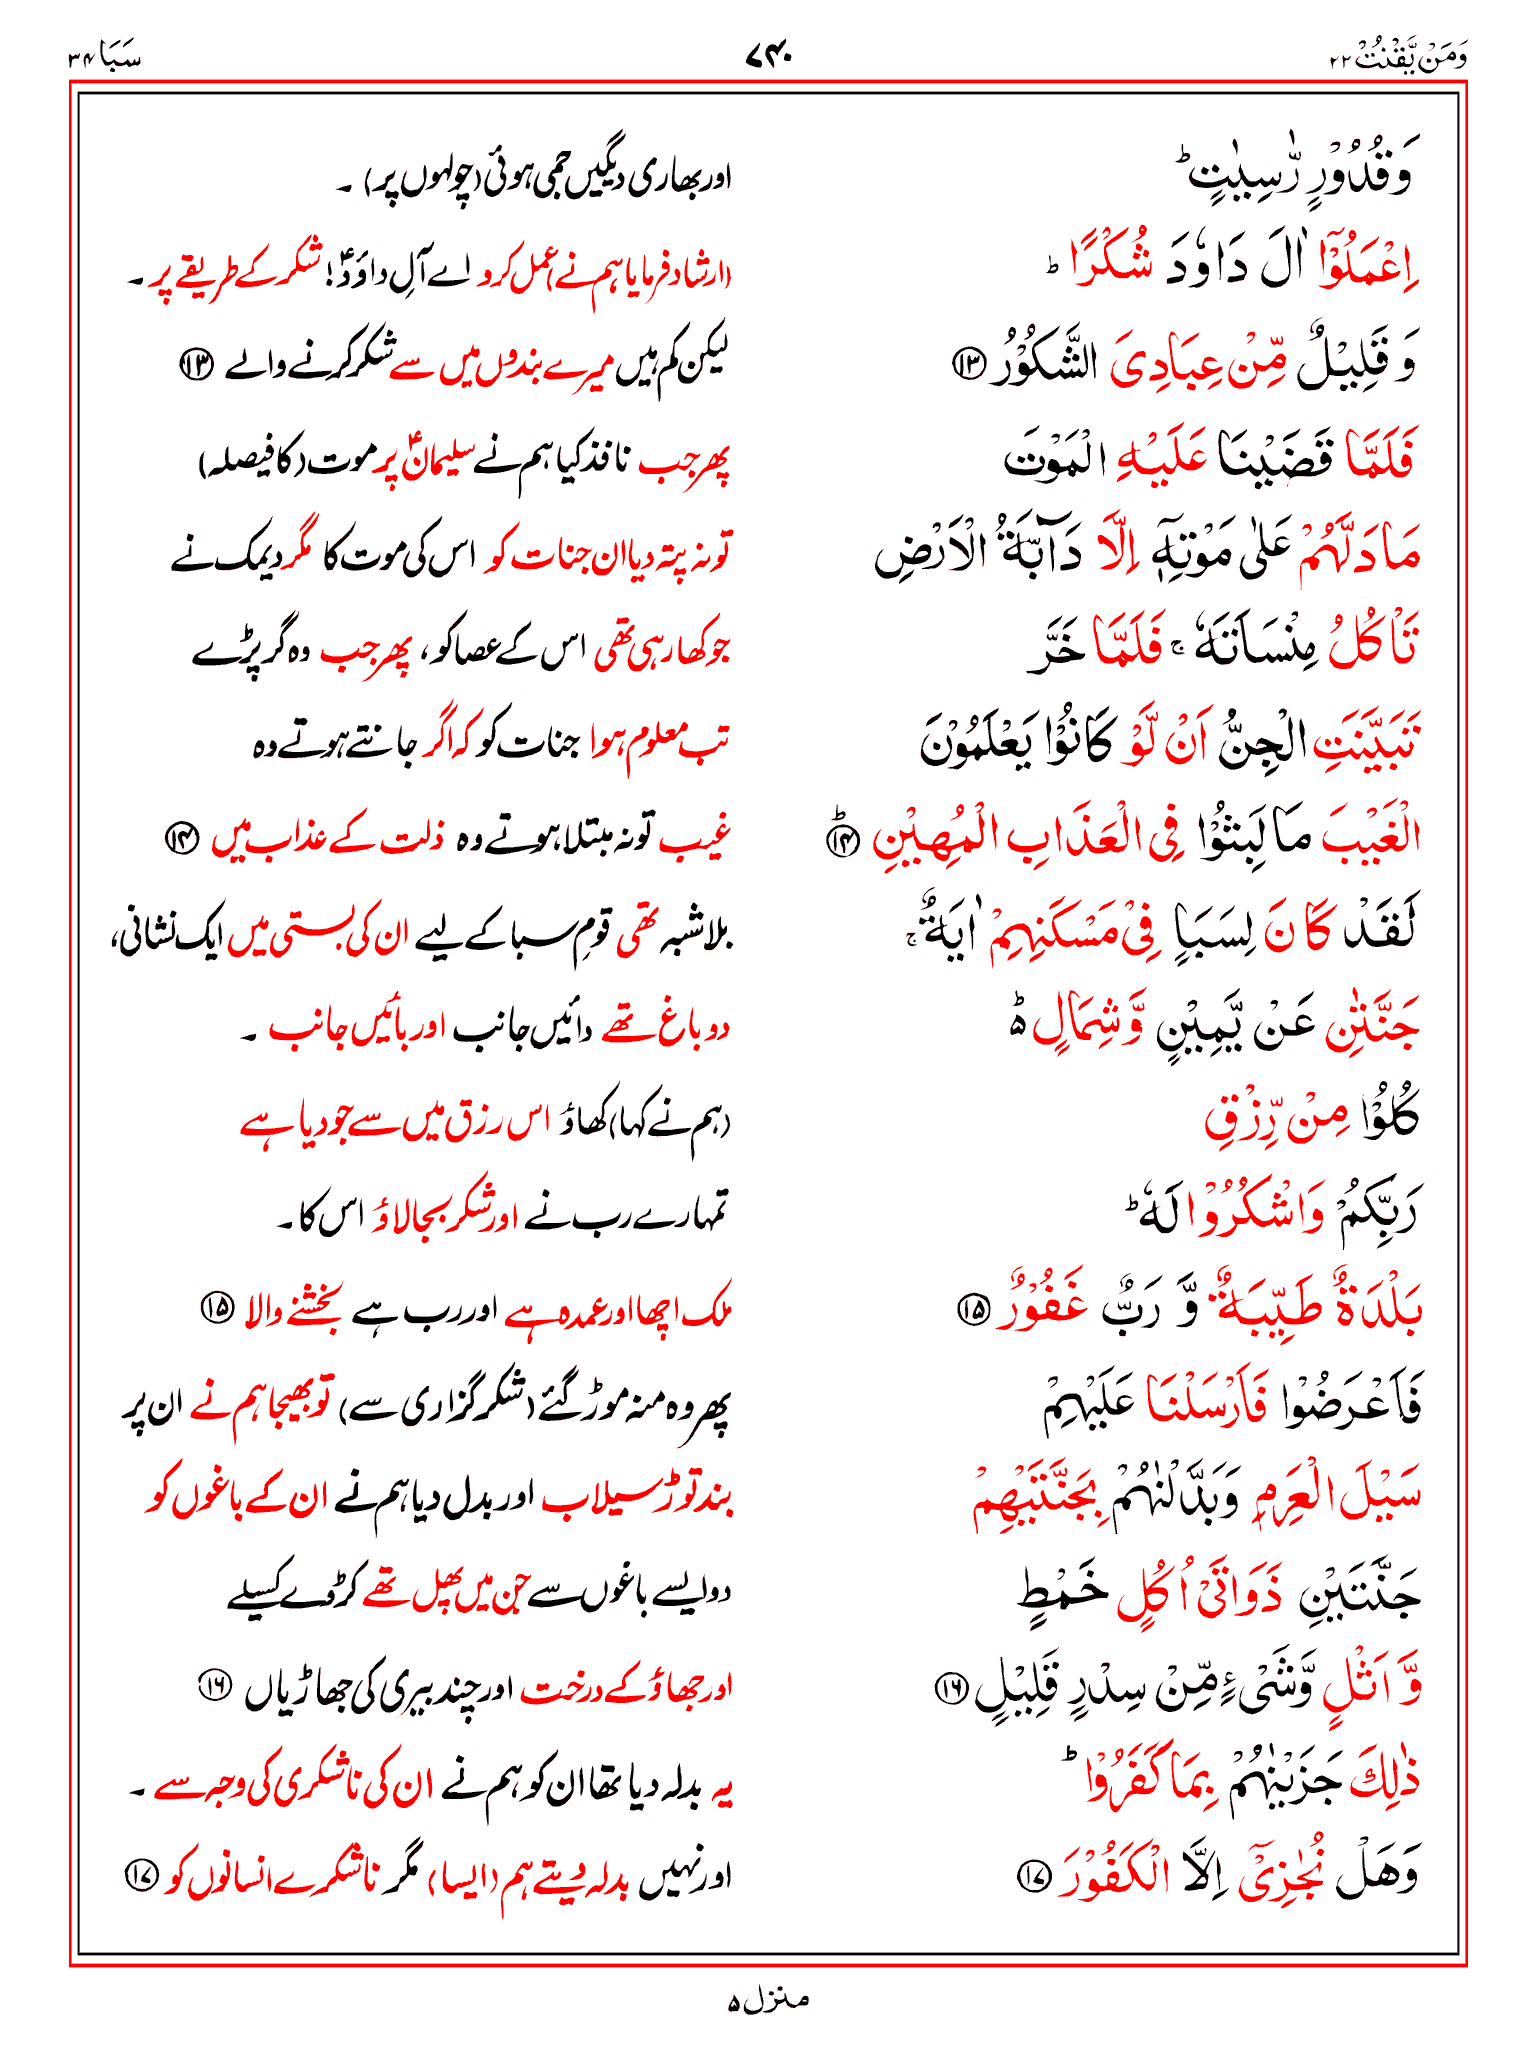 وَمَنْ يَّقْنُتْ ۲۲
۷۴۰
سَبَا ۳۴
وَقُدُوْرٍ رّٰسِيٰتٍ ؕ
اور بھاری دیگیں جمی ہوئی (چولہوں پر) ۔
اِعْمَلُوْۤا اٰلَ دَاوٗدَ شُكْرًا ؕ
(ارشاد فرمایا ہم نے) عمل کرو اے آلِ داوٗدؑ! شکر کے طریقے پر ۔
وَقَلِيْلٌ مِّنْ عِبَادِيَ الشَّكُوْرُ ⑬
لیکن کم ہیں میرے بندوں میں سے شکر کرنے والے ⑬
فَلَمَّا قَضَيْنَا عَلَيْهِ الْمَوْتَ
پھر جب نافذ کیا ہم نے سلیمانؑ پر موت (کا فیصلہ)
مَا دَلَّهُمْ عَلٰى مَوْتِهٖۤ اِلَّا دَآبَّةُ الْاَرْضِ
تو نہ پتہ دیا ان جنات کو اس کی موت کا مگر دیمک نے
تَاْكُلُ مِنْسَاَتَهٗ ۚ فَلَمَّا خَرَّ
جو کھا رہی تھی اس کے عصا کو، پھر جب وہ گر پڑے
تَبَيَّنَتِ الْجِنُّ اَنْ لَّوْ كَانُوْا يَعْلَمُوْنَ
تب معلوم ہوا جنات کو کہ اگر جانتے ہوتے وہ
الْغَيْبَ مَا لَبِثُوْا فِى الْعَذَابِ الْمُهِيْنِ ؕ ⑭
غیب تو نہ مبتلا ہوتے وہ ذلت کے عذاب میں ⑭
لَقَدْ كَانَ لِسَبَاٍ فِيْ مَسْكَنِهِمْ اٰيَةٌ ۚ
بلاشبہ تھی قومِ سبا کے لیے ان کی بستی میں ایک نشانی،
جَنَّتٰنِ عَنْ يَّمِيْنٍ وَّشِمَالٍ ۬ؕ
دو باغ تھے دائیں جانب اور بائیں جانب ۔
كُلُوْا مِنْ رِّزْقِ
(ہم نے کہا) کھاؤ اس رزق میں سے جو دیا ہے
رَبِّكُمْ وَاشْكُرُوْا لَهٗ ؕ
تمہارے رب نے اور شکر بجا لاؤ اس کا۔
بَلْدَةٌ طَيِّبَةٌ وَّ رَبٌّ غَفُوْرٌ ⑮
ملک اچھا اور عمدہ ہے اور رب ہے بخشنے والا ⑮
فَاَعْرَضُوْا فَاَرْسَلْنَا عَلَيْهِمْ
پھر وہ منہ موڑ گئے (شکر گزاری سے) تو بھیجا ہم نے ان پر
سَيْلَ الْعَرِمِ وَبَدَّلْنٰهُمْ بِجَنَّتَيْهِمْ
بند توڑ سیلاب اور بدل دیا ہم نے ان کے باغوں کو
جَنَّتَيْنِ ذَوَاتَىْ اُكُلٍ خَمْطٍ
دو ایسے باغوں سے جن میں پھل تھے کڑوے کسیلے
وَّ اَثْلٍ وَّشَىْءٍ مِّنْ سِدْرٍ قَلِيْلٍ ⑯
اور جھاؤ کے درخت اور چند بیری کی جھاڑیاں ⑯
ذٰلِكَ جَزَيْنٰهُمْ بِمَا كَفَرُوْا ؕ
یہ بدلہ دیا تھا ان کو ہم نے ان کی ناشکری کی وجہ سے ۔
وَهَلْ نُجٰزِىْۤ اِلَّا الْكَفُوْرَ ⑰
اور نہیں بدلہ دیتے ہم (ایسا) مگر ناشکرے انسانوں کو ⑰
منزل ۵